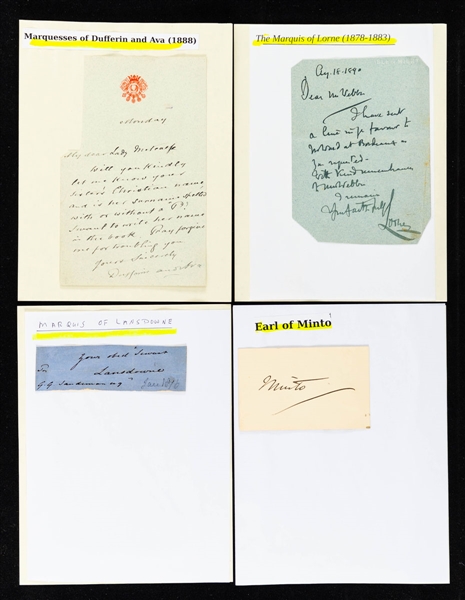 Marquesses of Dufferin and Ava (1888)
Monday
My dear Lady
Will you kindly
let me know your
sister's Christian name
and is her surname spelled
with or without a
I want to write her name
in the book. Pray forgive
me for troubling you
Yours Sincerely
Dufferin and Ava
The Marquis of Lorne (1878-1883)
Aug. 18. 1890
Dear Mr Webber
I have sent
a line in favour to
as
requested.
With kind remembrances
Mrs Webber
I remain
Yrs faithfully
Lorne
MARQUIS OF LANSDOWNE
Your obed Servant
Lansdowne
To
G. G. Sandeman Esq
Earl of Minto
Minto